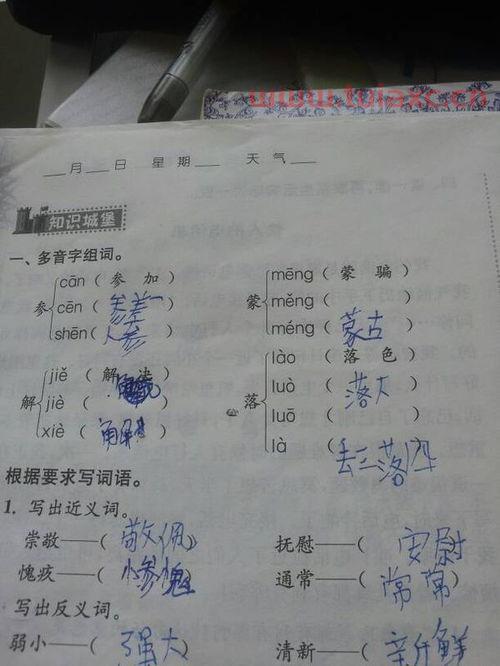 www.tulaxx.cn
___月___日 星期___ 天气___
知识城堡
一、多音字组词。
参 cān（参加） cēn（参差） shēn（人参）
蒙 mēng（蒙骗） měng（ ） méng（蒙古）
解 jiě（解决） jiè（ ） xiè（ ）
落 lào（落色） luò（落大） luō（ ） là（丢三落四）
根据要求写词语。
1. 写出近义词。
崇敬——（敬佩 抚慰——（安慰
愧疚——（惭愧 通常——（常常
写出反义词。
弱小——（强大 清新——（新鲜